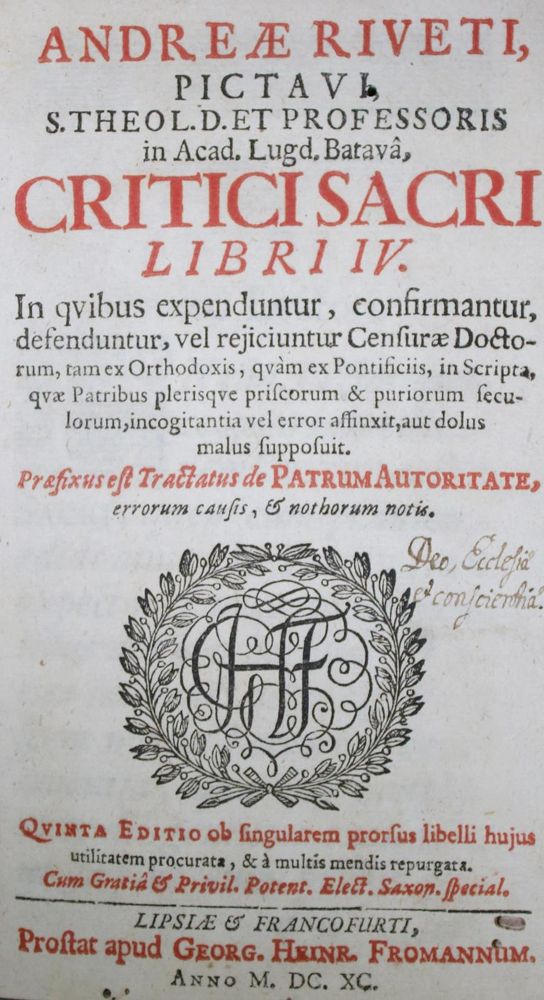 ANDREÆ RIVETI,
PICTAVI,
S. THEOL. D. ET PROFESSORIS
in Acad. Lugd. Batavâ,
CRITICI SACRI
LIBRI IV.
In qvibus expenduntur, confirmantur,
defenduntur, vel rejiciuntur Cenſuræ Docto-
rum, tam ex Orthodoxis, qvàm ex Pontificiis, in Scripta,
qvæ Patribus plerisqve priſcorum & puriorum ſecu-
lorum, incogitantia vel error affinxit, aut dolus
malus ſuppoſuit.
Præfixus eſt Tractatus de PATRUM AUTORITATE,
errorum cauſis, & nothorum notis.
Deo, Ecclesiæ
et conscientiæ.
HF
QVINTA EDITIO ob ſingularem prorſus libelli hujus
utilitatem procurata, & à multis mendis repurgata.
Cum Gratiâ & Privil. Potent. Elect. Saxon. ſpecial.
LIPSIÆ & FRANCOFURTI,
Proſtat apud GEORG. HEINR. FROMANNUM.
ANNO M. DC. XC.